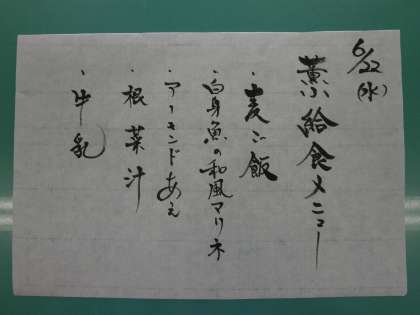 6/22(水)
薫給食メニュー
・麦ご飯
・白身魚の和風マリネ
・アーモンドあえ
・根菜汁
・牛乳